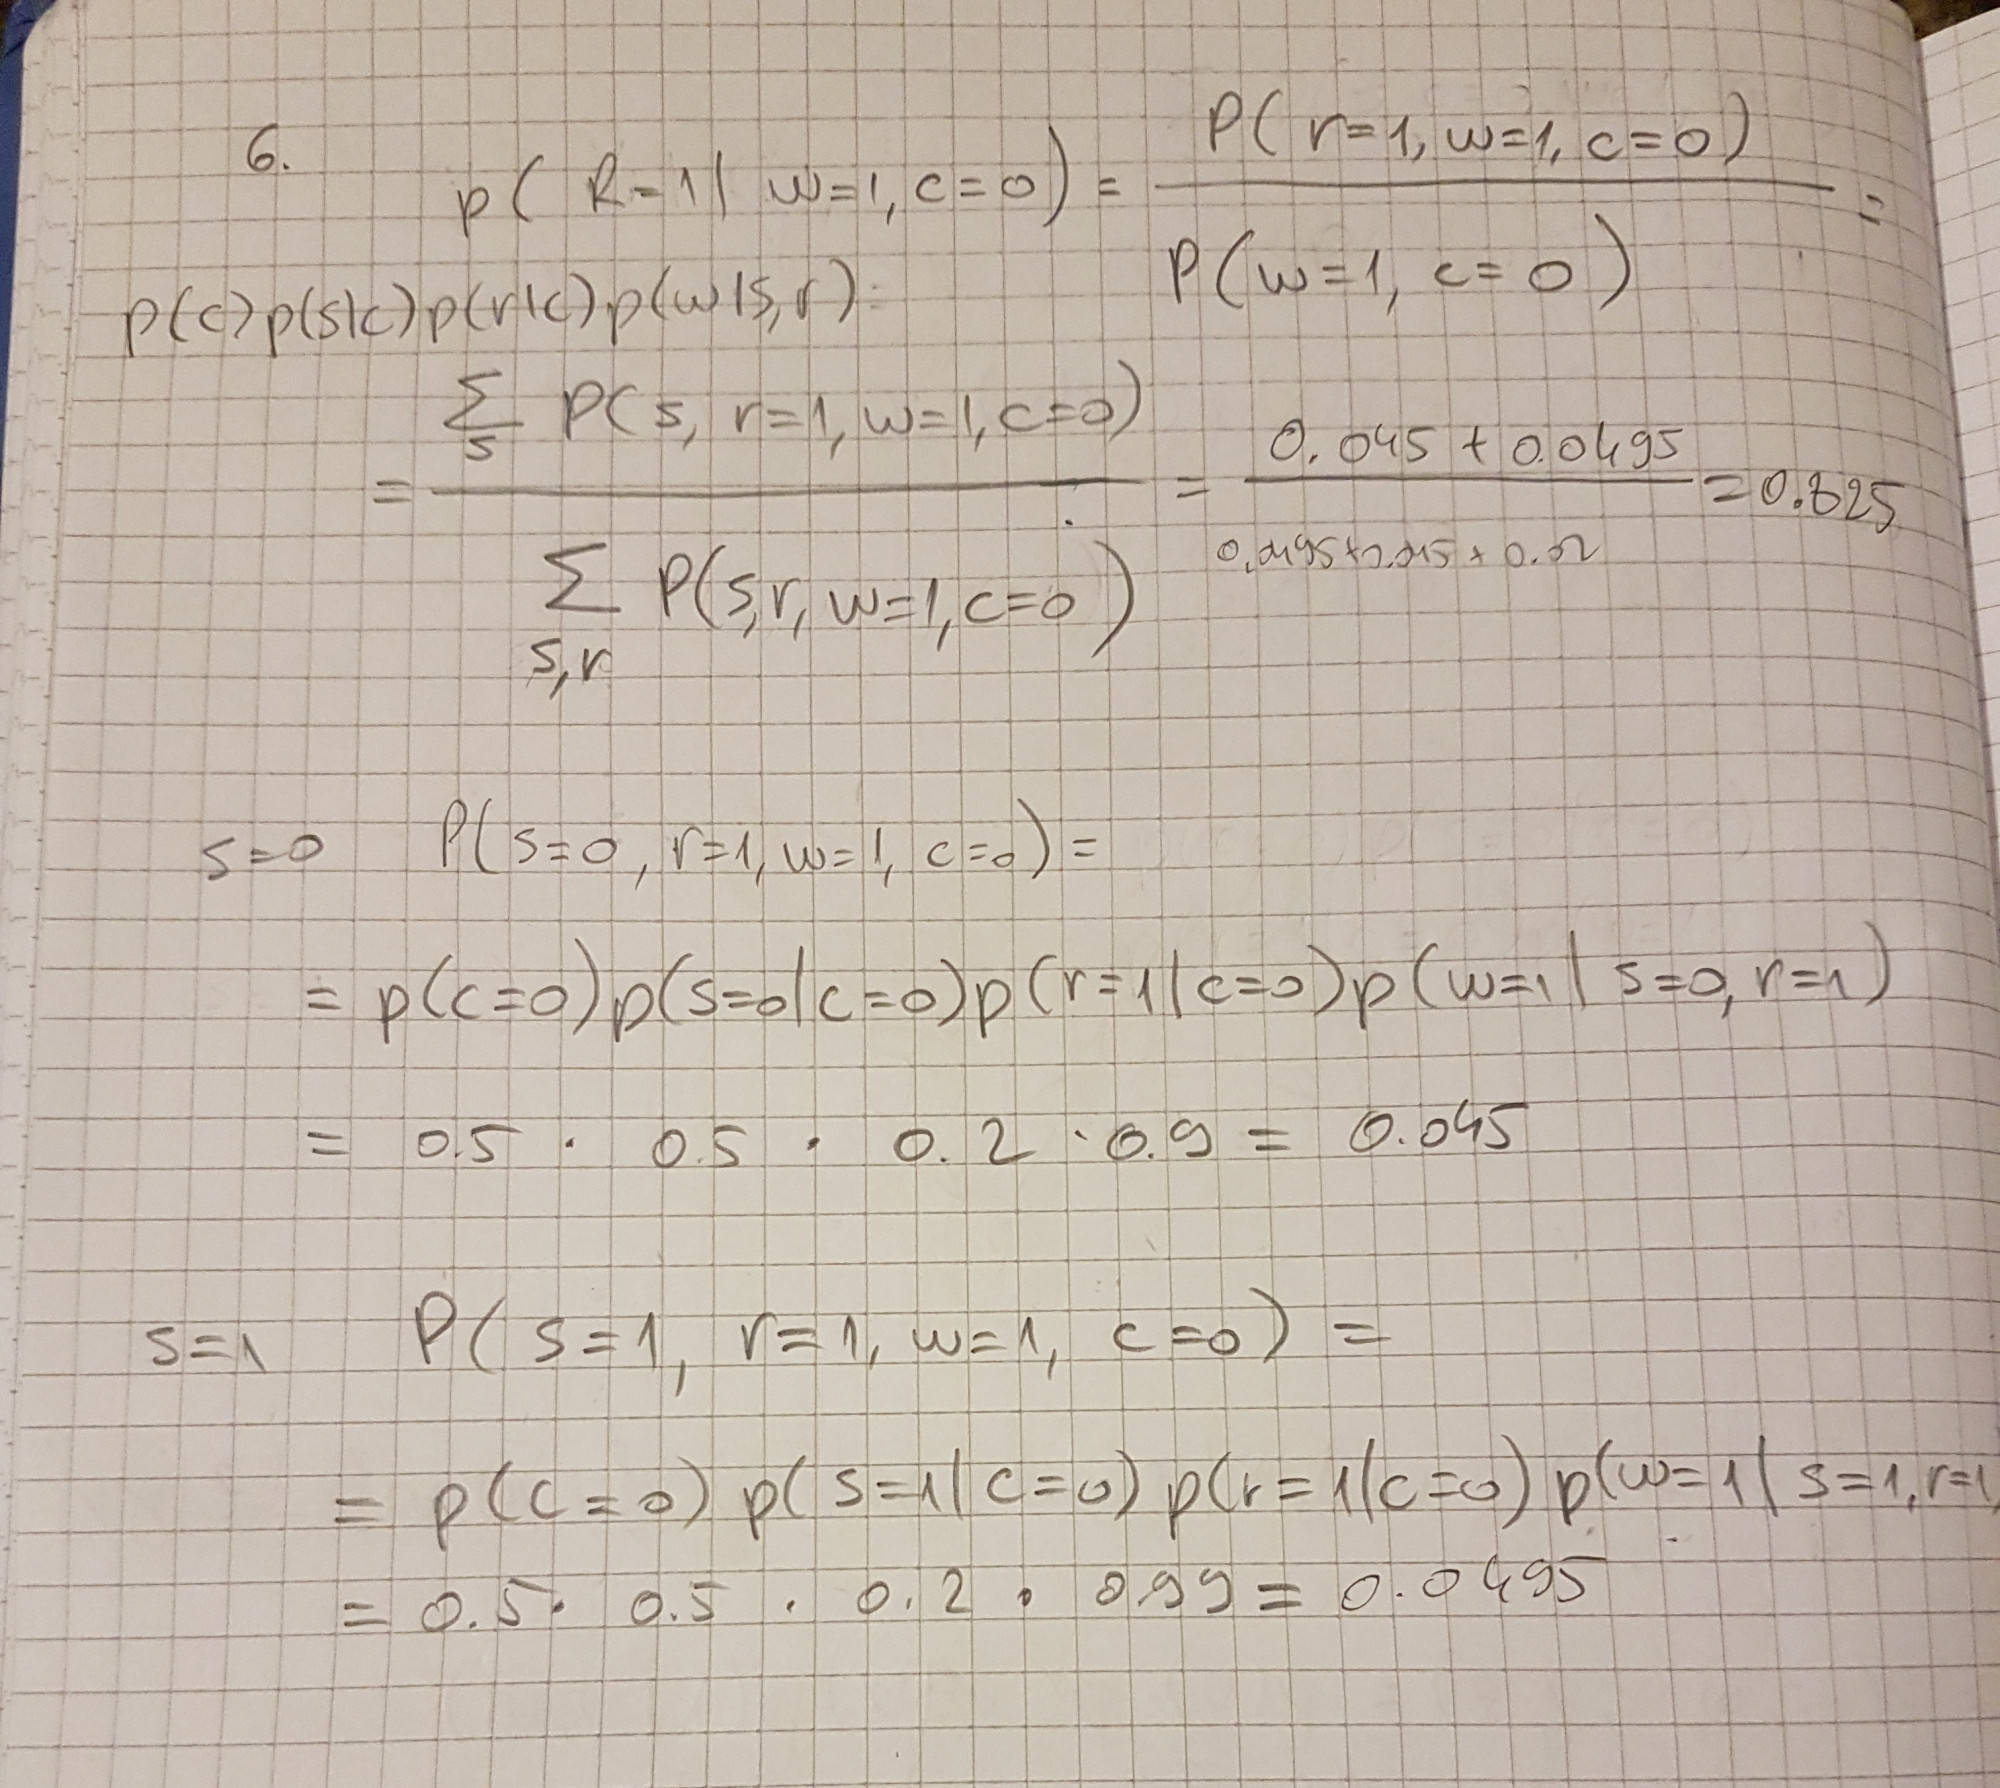 6.
p( R=1 | w=1, c=0) = P( r=1, w=1, c=0) / P(w=1, c=0) =
p(c) p(s|c) p(r|c) p(w|s, r):
= ∑_s P(s, r=1, w=1, c=0) / ∑_{s,r} P(s,r, w=1, c=0) = 0.045 + 0.0495 / 0.0495+0.045 + 0.02 = 0.825
s=0 P(s=0, r=1, w=1, c=0) =
= p(c=0) p(s=0|c=0) p(r=1|c=0) p(w=1 | s=0, r=1)
= 0.5 · 0.5 · 0.2 · 0.9 = 0.045
s=1 P( s=1, r=1, w=1, c=0) =
= p(c=0) p(s=1|c=0) p(r=1|c=0) p(w=1 | s=1, r=1)
= 0.5 · 0.5 · 0.2 · 0.99 = 0.0495